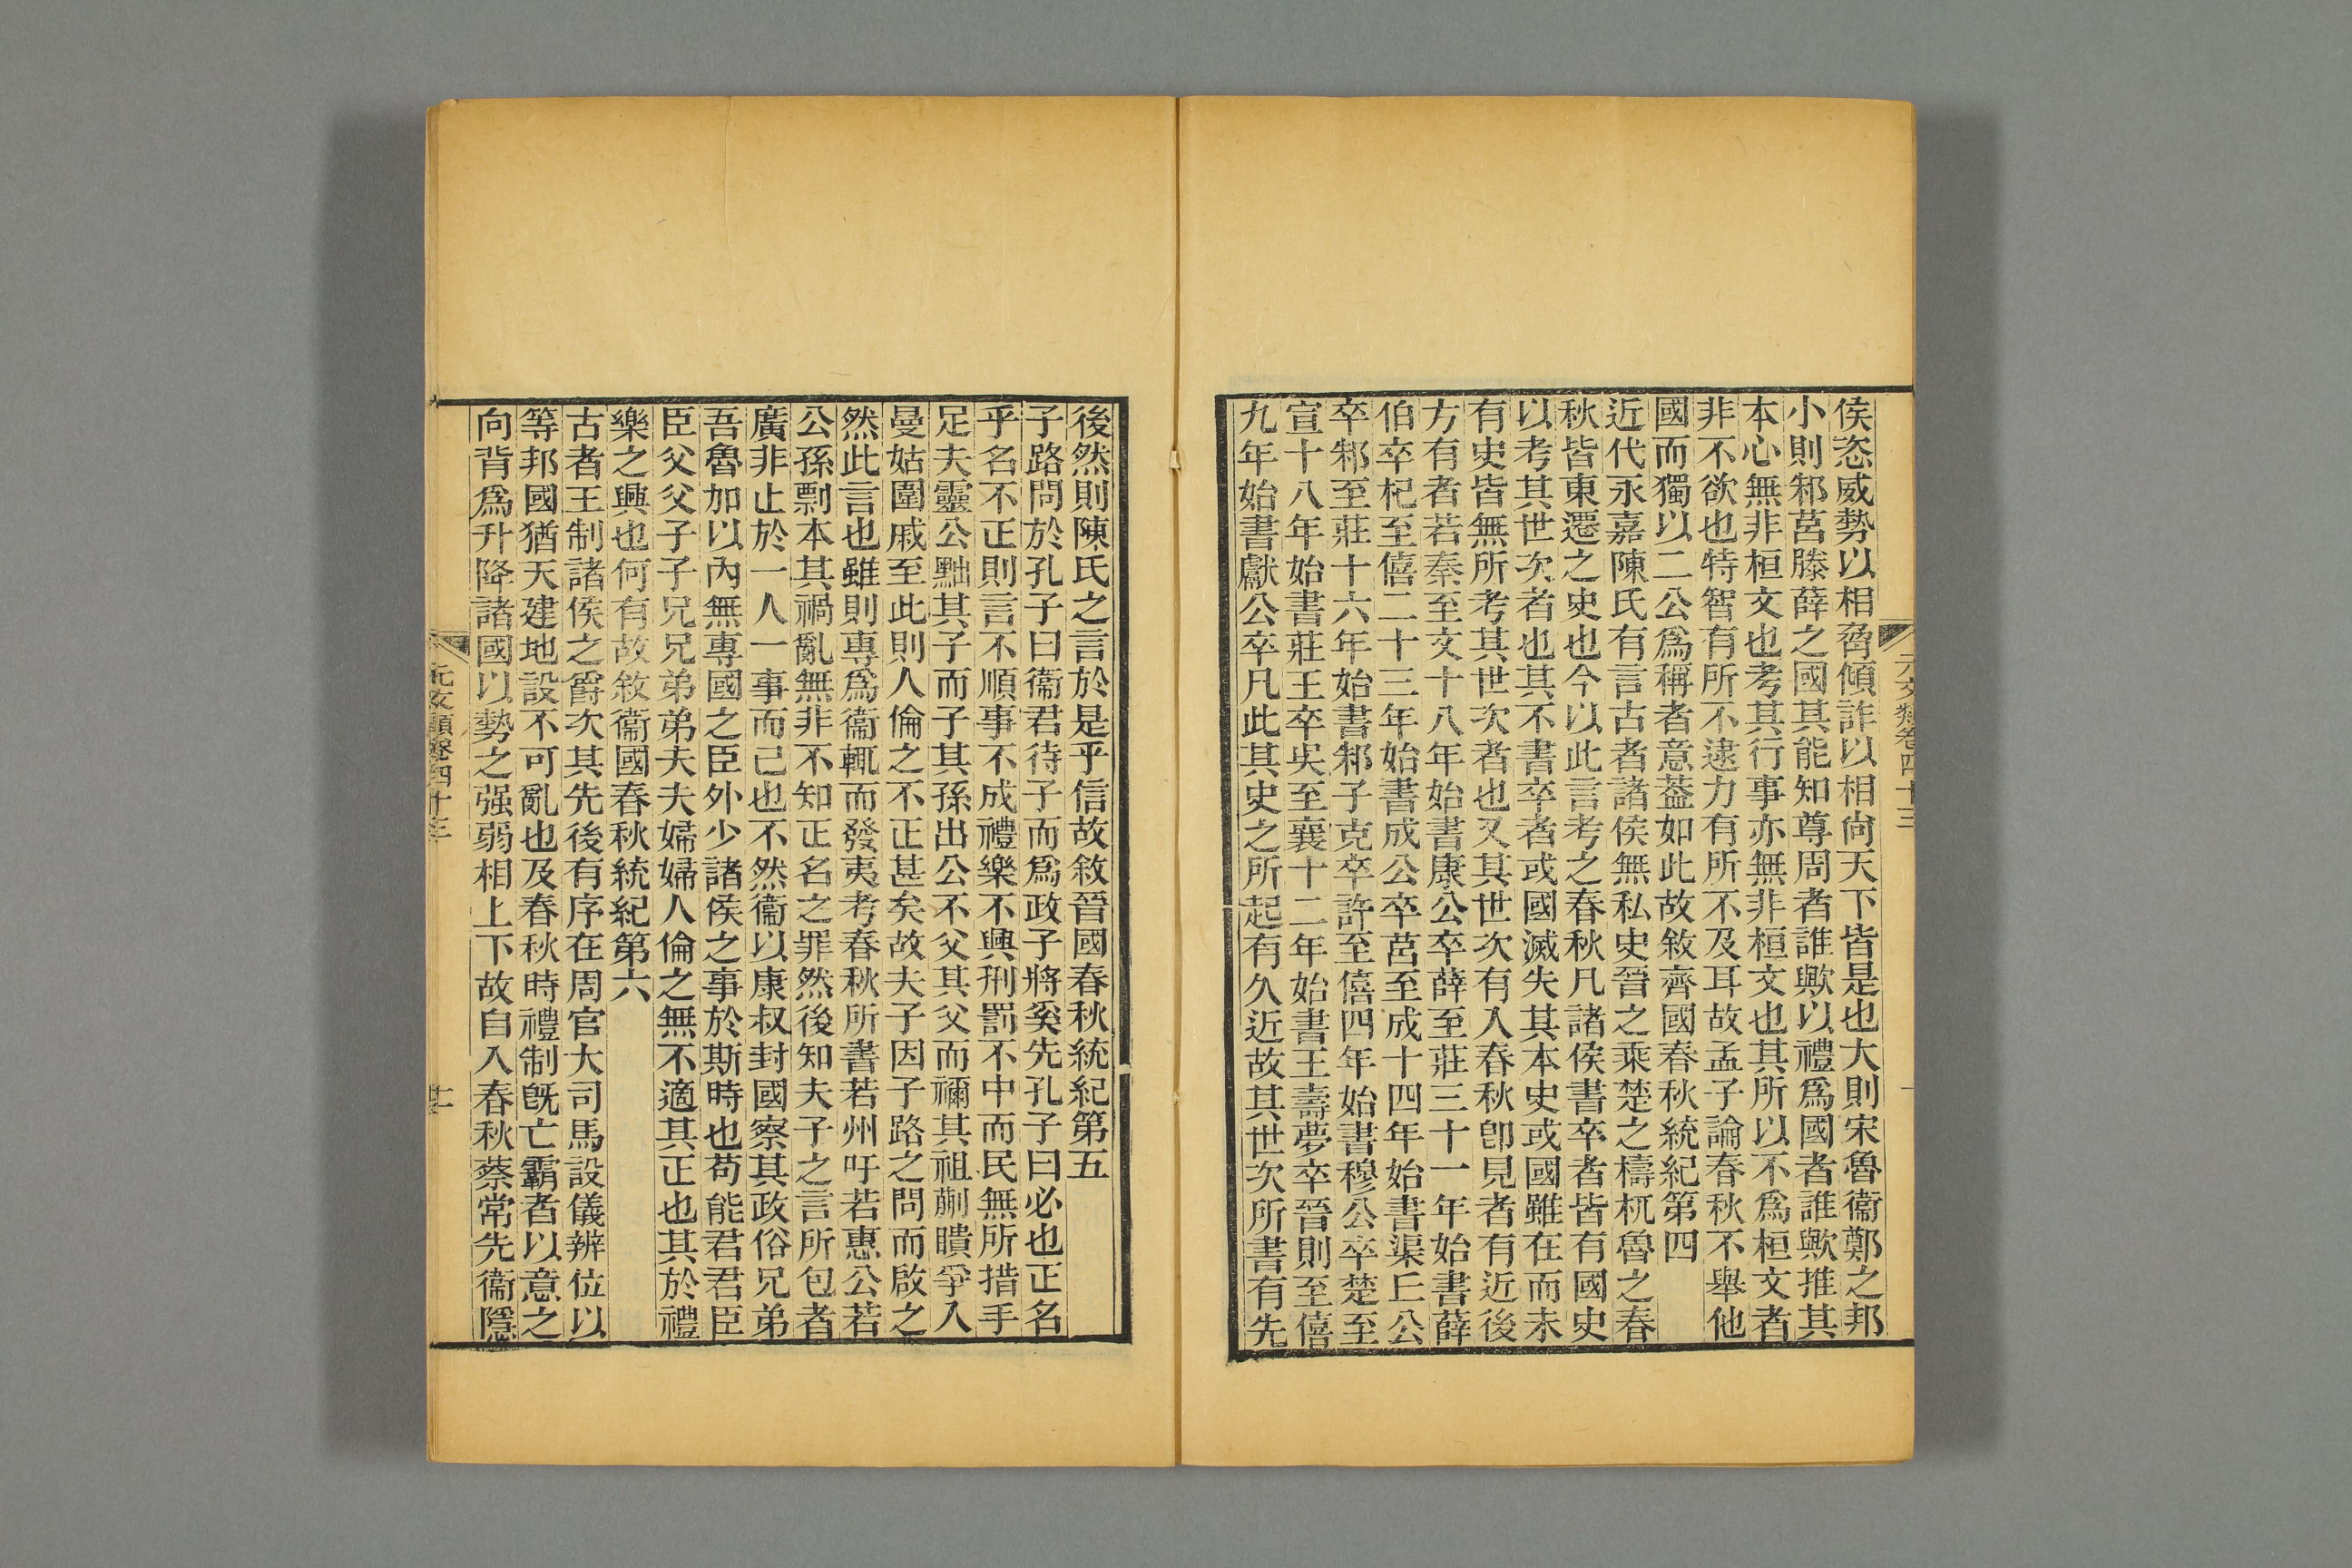 侯恣威勢以相脅傾詐以相尙天下皆是也大則宋魯衞鄭之邦
小則邾莒滕薛之國其能知尊周者誰歟以禮爲國者誰歟推其
本心無非桓文也考其行事亦無非桓文也其所以不爲桓文者
非不欲也特智有所不逮力有所不及耳故孟子論春秋不舉他
國而獨以二公爲稱者意葢如此故敘齊國春秋統紀第四
近代永嘉陳氏有言古者諸侯無私史晉之乘楚之檮杌魯之春
秋皆東遷之史也今以此言考之春秋凡諸侯書卒者皆有國史
以考其世次者也其不書卒者或國滅失其本史或國雖在而未
有史皆無所考其世次者也又其世次有入春秋卽見者有近後
方有者若秦至文十八年始書康公卒薛至莊三十一年始書薛
伯卒杞至僖二十三年始書成公卒莒至成十四年始書渠丘公
卒邾至莊十六年始書邾子克卒許至僖四年始書穆公卒楚至
宣十八年始書莊王卒吳至襄十二年始書王壽夢卒晉則至僖
九年始書獻公卒凡此其史之所起有久近故其世次所書有先
後然則陳氏之言於是乎信故敘晉國春秋統紀第五
子路問於孔子曰衞君待子而爲政子將奚先孔子曰必也正名
乎名不正則言不順事不成禮樂不興刑罰不中而民無所措手
足夫靈公黜其子而子其孫出公不父其父而禰其祖蒯聵爭入
曼姑圍戚至此則人倫之不正甚矣故夫子因子路之問而啟之
然此言也雖則專爲衞輒而發夷考春秋所書若州吁若惠公若
公孫剽本其禍亂無非不知正名之罪然後知夫子之言所包者
廣非止於一人一事而已也不然衞以康叔封國察其政俗兄弟
吾魯加以內無專國之臣外少諸侯之事於斯時也苟能君君臣
臣父父子子兄兄弟弟夫夫婦婦人倫之無不適其正也其於禮
樂之興也何有故敘衞國春秋統紀第六
古者王制諸侯之爵次其先後有序在周官大司馬設儀辨位以
等邦國猶天建地設不可亂也及春秋時禮制旣亡霸者以意之
向背爲升降諸國以勢之强弱相上下故自入春秋蔡常先衞隱
元文類卷四十三